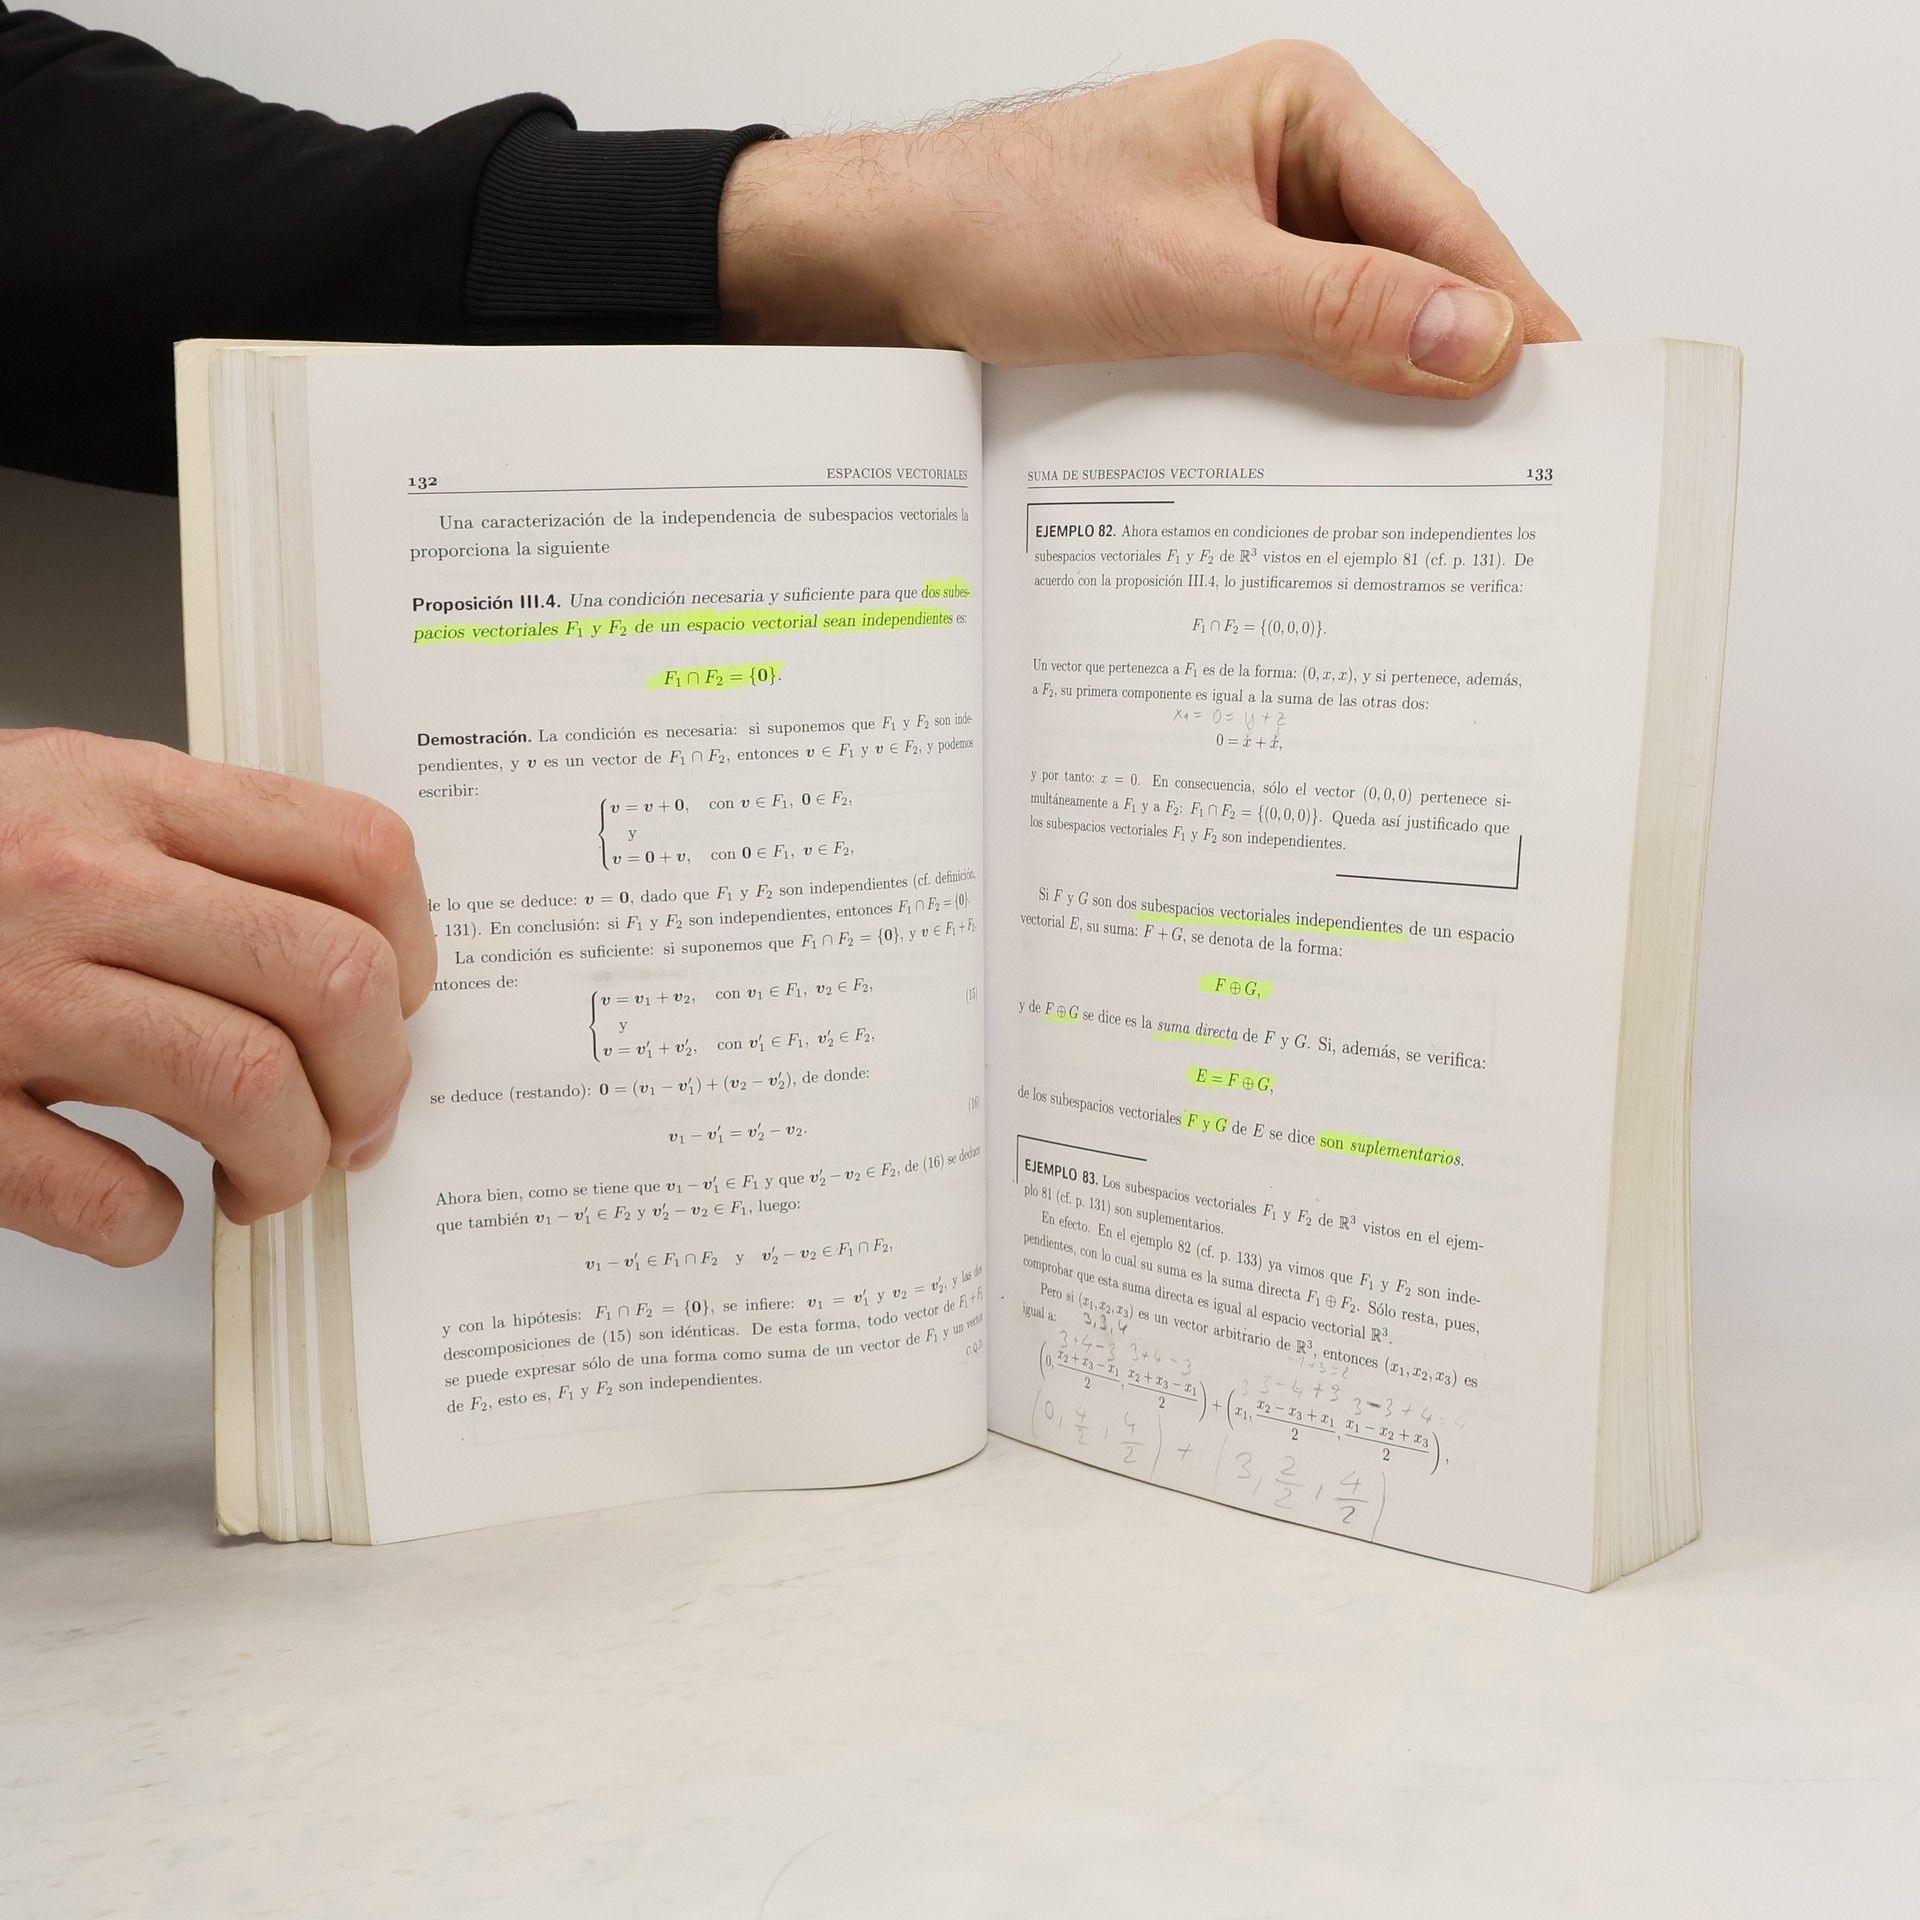 132 ESPACIOS VECTORIALES
Una caracterización de la independencia de subespacios vectoriales la
proporciona la siguiente
Proposición III.4. Una condición necesaria y suficiente para que dos subes-
pacios vectoriales F₁ y F₂ de un espacio vectorial sean independientes es:
F₁ ∩ F₂ = {0}.
Demostración. La condición es necesaria: si suponemos que F₁ y F₂ son inde-
pendientes, y v es un vector de F₁ ∩ F₂, entonces v ∈ F₁ y v ∈ F₂, y podemos
escribir:
v = v + 0, con v ∈ F₁, 0 ∈ F₂,
y
v = 0 + v, con 0 ∈ F₁, v ∈ F₂,
de lo que se deduce: v = 0, dado que F₁ y F₂ son independientes (cf. definición,
. 131). En conclusión: si F₁ y F₂ son independientes, entonces F₁ ∩ F₂ = {0}.
La condición es suficiente: si suponemos que F₁ ∩ F₂ = {0}, y v ∈ F₁ + F₂,
ntonces de:
v = v₁ + v₂, con v₁ ∈ F₁, v₂ ∈ F₂,
y (15)
v = v′₁ + v′₂, con v′₁ ∈ F₁, v′₂ ∈ F₂,
se deduce (restando): 0 = (v₁ − v′₁) + (v₂ − v′₂), de donde:
v₁ − v′₁ = v′₂ − v₂. (16)
Ahora bien, como se tiene que v₁ − v′₁ ∈ F₁ y que v′₂ − v₂ ∈ F₂, de (16) se deduce
que también v₁ − v′₁ ∈ F₂ y v′₂ − v₂ ∈ F₁, luego:
v₁ − v′₁ ∈ F₁ ∩ F₂ y v′₂ − v₂ ∈ F₁ ∩ F₂,
y con la hipótesis: F₁ ∩ F₂ = {0}, se infiere: v₁ = v′₁ y v₂ = v′₂, y las dos
descomposiciones de (15) son idénticas. De esta forma, todo vector de F₁ + F₂
se puede expresar sólo de una forma como suma de un vector de F₁ y un vector
de F₂, esto es, F₁ y F₂ son independientes. C.Q.D.
SUMA DE SUBESPACIOS VECTORIALES 133
EJEMPLO 82. Ahora estamos en condiciones de probar son independientes los
subespacios vectoriales F₁ y F₂ de ℝ³ vistos en el ejemplo 81 (cf. p. 131). De
acuerdo con la proposición III.4, lo justificaremos si demostramos se verifica:
F₁ ∩ F₂ = {(0, 0, 0)}.
Un vector que pertenezca a F₁ es de la forma: (0, x, x), y si pertenece, además,
a F₂, su primera componente es igual a la suma de las otras dos:
x₁ = 0 = y + z
0 = x + x,
y por tanto: x = 0. En consecuencia, sólo el vector (0, 0, 0) pertenece si-
multáneamente a F₁ y a F₂: F₁ ∩ F₂ = {(0, 0, 0)}. Queda así justificado que
los subespacios vectoriales F₁ y F₂ son independientes.
Si F y G son dos subespacios vectoriales independientes de un espacio
vectorial E, su suma: F + G, se denota de la forma:
F ⊕ G,
y de F ⊕ G se dice es la suma directa de F y G. Si, además, se verifica:
E = F ⊕ G,
de los subespacios vectoriales F y G de E se dice son suplementarios.
EJEMPLO 83. Los subespacios vectoriales F₁ y F₂ de ℝ³ vistos en el ejem-
plo 81 (cf. p. 131) son suplementarios.
En efecto. En el ejemplo 82 (cf. p. 133) ya vimos que F₁ y F₂ son inde-
pendientes, con lo cual su suma es la suma directa F₁ ⊕ F₂. Sólo resta, pues,
comprobar que esta suma directa es igual al espacio vectorial ℝ³.
Pero si (x₁, x₂, x₃) es un vector arbitrario de ℝ³, entonces (x₁, x₂, x₃) es
igual a: 3, 3, 4
3+4−3 3+4−3 3 3−4+3 3−3+4=4
(0, (x₂ + x₃ − x₁)/2, (x₂ + x₃ − x₁)/2) + (x₁, (x₂ − x₃ + x₁)/2, (x₁ − x₂ + x₃)/2),
(0, 4/2, 4/2) + (3, 2/2, 4/2)